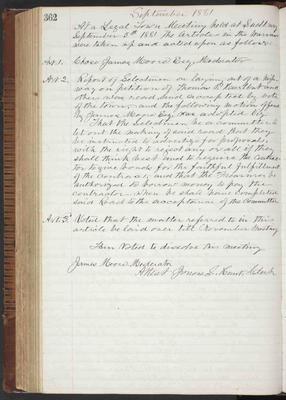 362
September 1881
At a Legal Town Meeting held at Sudbury
September 5th 1881 the Articles in the warrant
was taken up and acted upon as follows
Art. 1. Chose James Moore Esq. Moderator
Art. 2. Report of Selectmen on laying out of a high
way on petition of Thomas and
others was read and accepted by vote
of the town, and the following motion offered
by James Moore Esq. was adopted viz
That the Selectmen be a committee to
let out the making of said road that they
be instructed to advertise for proposals
with the right to reject any or all if they
shall think best and to require the contrac
tor to give bonds for the faithful fulfillment
of the contract, and that the Treasurer be
authorized to borrow money to pay the
contractor when he shall have completed
said Road to the acceptance of the Committee
Art. 3. Voted that the matter referred to in this
article be laid over till November meeting
Voted to dissolve this meeting
James Moore Moderator
Attest Jonas S. Hunt, Clerk